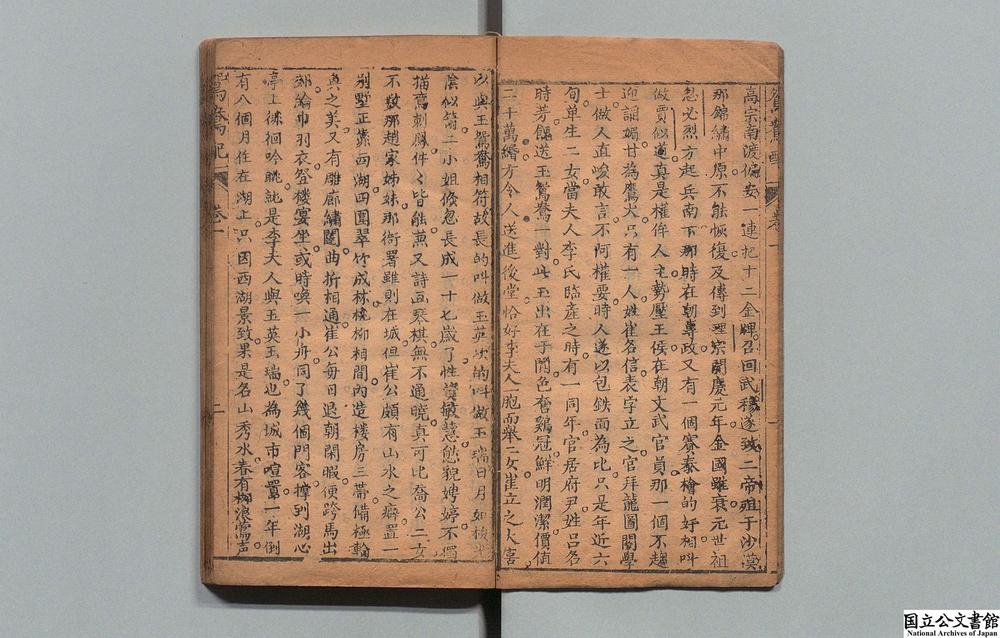 鴛鴦配 卷一 一
高宗南渡偏安一連把十二金牌召回武穆遂致二帝殂于沙漠
那錦繡中原不能恢復及傳到理宗開慶元年金國雖衰元世祖
忽必烈方起兵南下那時在朝專政又有一個賽秦檜的奸相叫
做賈似道真是權侔人主勢壓王侯在朝文武官員那一個不趨
迎諂媚甘為鷹犬只有一人姓崔名信表字立之官拜龍圖閣學
士做人直峻敢言不阿權要時人遂以包鉄面為比只是年近六
旬单生二女當夫人李氏臨產之時有一同年官居府尹姓呂名
時芳餽送玉鴛鴦一對此玉出在于闐色奪鷄冠鮮明潤潔價值
二十萬緡方令人送進後堂恰好李夫人一胞而舉二女崔立之大喜
以與玉鴛鴦相符故長的叫做玉英次的叫做玉瑞日月如梭光
陰似箭二小姐倏忽長成一十七歲了性資敏慧態貌娉婷不獨
描鸞刺鳳件〻皆能兼又詩画琴棋無不通曉真可比喬公二女
不数那趙家姊妹那衙署雖則在城但崔公頗有山水之癖置一
别墅正靠西湖四圍翠竹成林桃柳相間內造楼房三帶備極輪
奐之美又有雕廊繡闥曲折相通崔公每日退朝閑暇便跨馬出
郊綸巾羽衣登楼宴坐或時喚一小舟同了幾個門客撑到湖心
亭上徘徊吟眺就是李夫人與玉英玉瑞也為城市喧囂一年倒
有八個月住在湖上只因西湖景致果是名山秀水春有柳浪鶯声
鴛鴦配 卷一 二
国立公文書館
National Archives of Japan